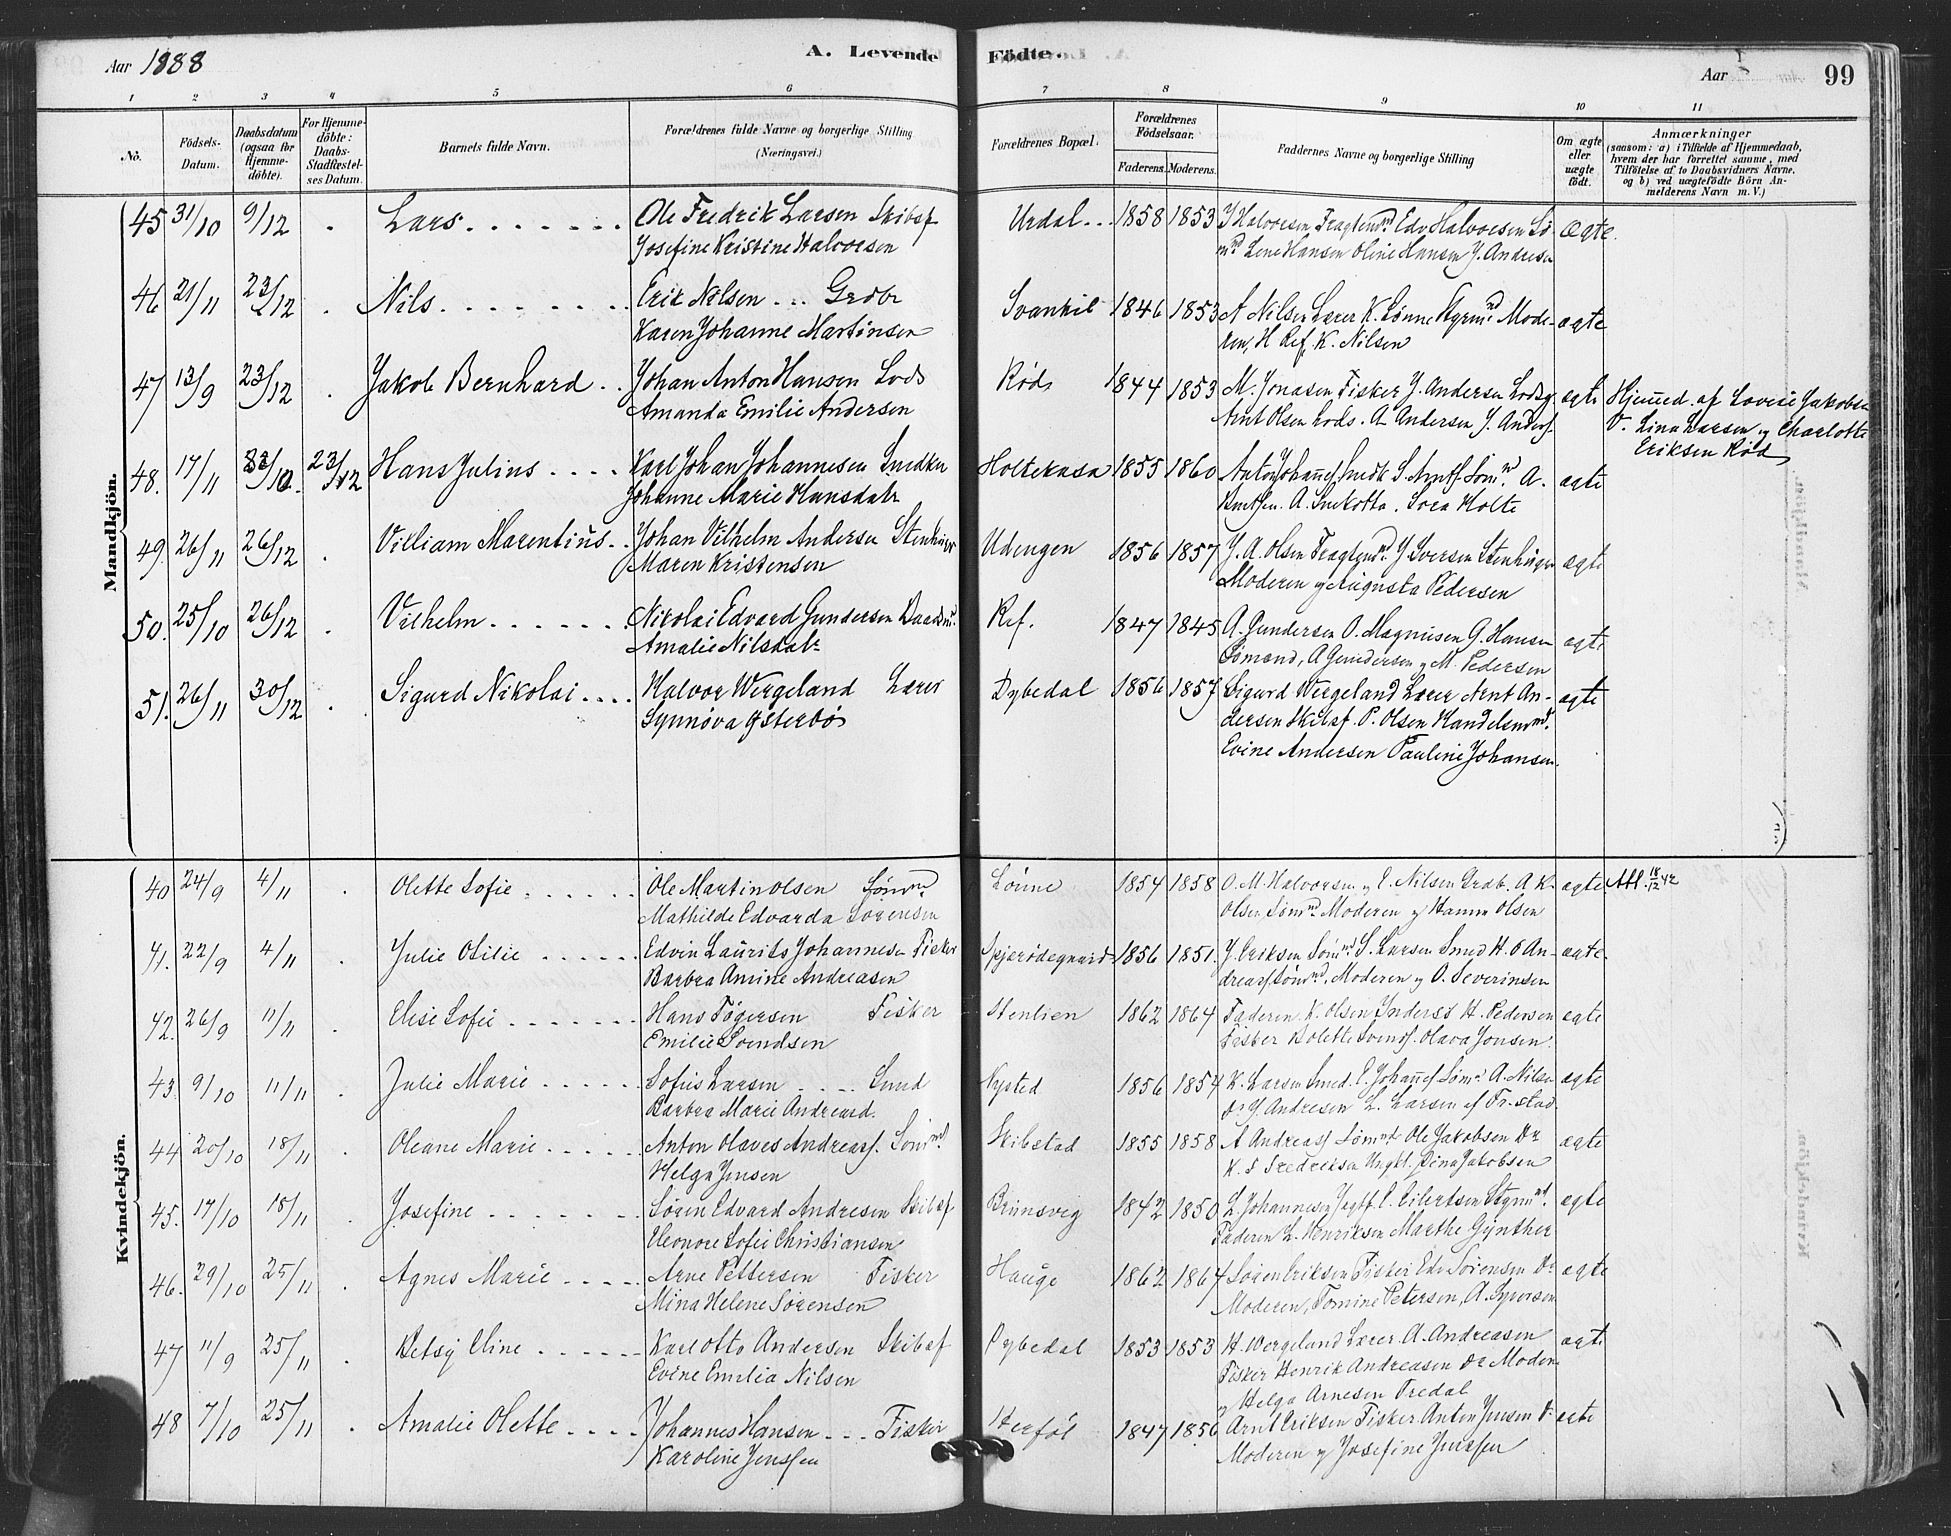 Aar 1888
A. Levende
Födte.
Aar
99
1 2 3 4 5 6 7 8 9 10 11
No.
Födsels-Datum.
Daabsdatum (ogsaa for Hjemme-döbte).
For Hjemme-döbte: Daabs-Stadfæstel-ses Datum.
Barnets fulde Navn.
Forældrenes fulde Navne og borgerlige Stilling
(Næringsvei.)
Forældrenes Bopæl.
Forældrenes Födselsaar.
Faderens. Moderens.
Faddernes Navne og borgerlige Stilling
Om ægte eller uægte födt.
Anmærkninger
(saasom: a) i Tilfælde af Hjemmedaab,
hvem der har forrettet samme, med
Tilföielse af to Daabsvidners Navne,
og b) ved uægtefödte Börn An-
melderens Navn m. V.)
Mandkjön.
45 31/10 9/12 . Lars Ole Fredrik Larsen Skibsf Urdal 1858 1853 J Halvorsen Fragtemd Edv Halvorsen Sö- ægte
Josefine Kristine Halvorsen md Lene Hansen Oline Hansen J. Andresen
46 21/11 23/12 . Nils Erik Nilsen Grøbr Svankil 1846 1853 A Nilsen Lærer K. Lønne Styrmd Mode- ægte
Karen Johanne Martinsen ren, H Ref, K. Nilsen
47 13/9 23/12 . Jakob Bernhard Johan Anton Hansen Lods Rød 1844 1853 M. Jonasen Fisker J. Andersen Lods ægte Hjemmed. af Lovise Jakobsen
Amanda Emilie Andersen Arnt Olsen Lods. A Andersen J. Anders. V. Lina Larsen og Charlotte
Eriksen Rød
48. 17/11 23/12 Hans Julius Karl Johan Johannesen Snedker Holtekasa 1855 1860 Anton Johans Smedk S. Arntf Sømd. A. ægte
Johanne Marie Hansdatr Berntsen. A. Snekotta. Svea Holte
49. 26/11 26/12 . Villiam Marentius Johan Vilhelm Andersen Stenhuger Udengen 1856 1857 J. A. Olsen Fragtemd. J Iversen Stenhugger ægte
Maren Kristensen Moderen og Augusta Pedersen
50. 25/10 26/12 . Vilhelm Nikolai Edvard Gundersen Ref. 1847 1845 A. Gundersen O. Magnusen G. Hansen ægte
Amalie Nilsdatr Sømænd, A Gundersen og M. Pedersen
51. 26/11 30/12 . Sigurd Nikolai Halvor Wergeland Lærer Dybedal 1856 1857 Sigurd Wergeland Lærer Arnt An- ægte
Synnöva Ysterbö dersen Skibsf. P. Olsen Handelsmd.
Evine Andersen Pauline Johansen.
Kvindekjön.
40 24/9 4/11 . Olette Sofie Ole Martin Olsen Sømmd Lønne 1854 1858 O. M. Halvorsen og E. Nilsen Grøb. A K. ægte Att. 18/12 42
Mathilde Edvarda Sørensen Olsen Sømd. Moderen og Hanna Olsen
41. 22/9 4/11 . Julie Otilie Edvin Laurits Johannesen Fisker Spjærødegaard 1856 1851. J. Eriksen Sømd. S. Larsen Smed H. O An- ægte
Barbra Amine Andreasen dreass Sømd, Moderen og O. Severinsen
42. 26/9 11/11 . Elise Sofie Hans Tögersen Fisker Stenlien 1862 1864 Faderen K. Olsen Inders H. Pedersen ægte
Emilie Svendsen Fisker Bolette Svends. Olava Jonsen.
43 9/10 11/11 . Julie Marie Sofus Larsen Smed Nysted 1856 1854 K. Larsen Smed. E. Johans Sømd A. Nilsen ægte
Barbra Marie Andreasd. Dr J. Andresen L. Larsen af Fr-stad.
44 20/10 18/11 . Oleane Marie Anton Olaves Andreass. Sømmd. Skibstad 1855 1858 A Andreass Sømmd Ole Jakobsen Dr ægte
Helga Jensen K. S Fredriksen Ungkl. Dina Jakobsen
45. 17/10 18/11 . Josefine Søren Edvard Andresen Skibsf Brunsvig 1842 1850 L. Johannesen Jagtf. E. Eilertsen Styrmd. ægte
Eleonore Sofie Christiansen Faderen L. Henriksen Marthe Gynther
46. 29/10 25/11 . Agnes Marie Arne Pettersen Fisker Hauge 1862 1864 Søren Eriksen Fisker Edv Sørensen Dr ægte
Mina Helene Sørensen Moderen, Tomine Petersen, A. Syversen
47 11/9 25/11 . Betsy Eline Karl Otto Andersen Skibsf Dybedal 1853 1853 H. Wergeland Lærer A. Andreasen ægte
Evine Emilia Nilsen Fisker Henrik Andreasen Dr Moderen
og Helga Arnesen Tredal
48 7/10 25/11 . Amalie Olette Johannes Hansen Fisker Herföl 1847 1856 Arnt Eriksen Fisker Anton Jensen D. ægte
Karoline Jenssen Moderen og Josefine Jenssen